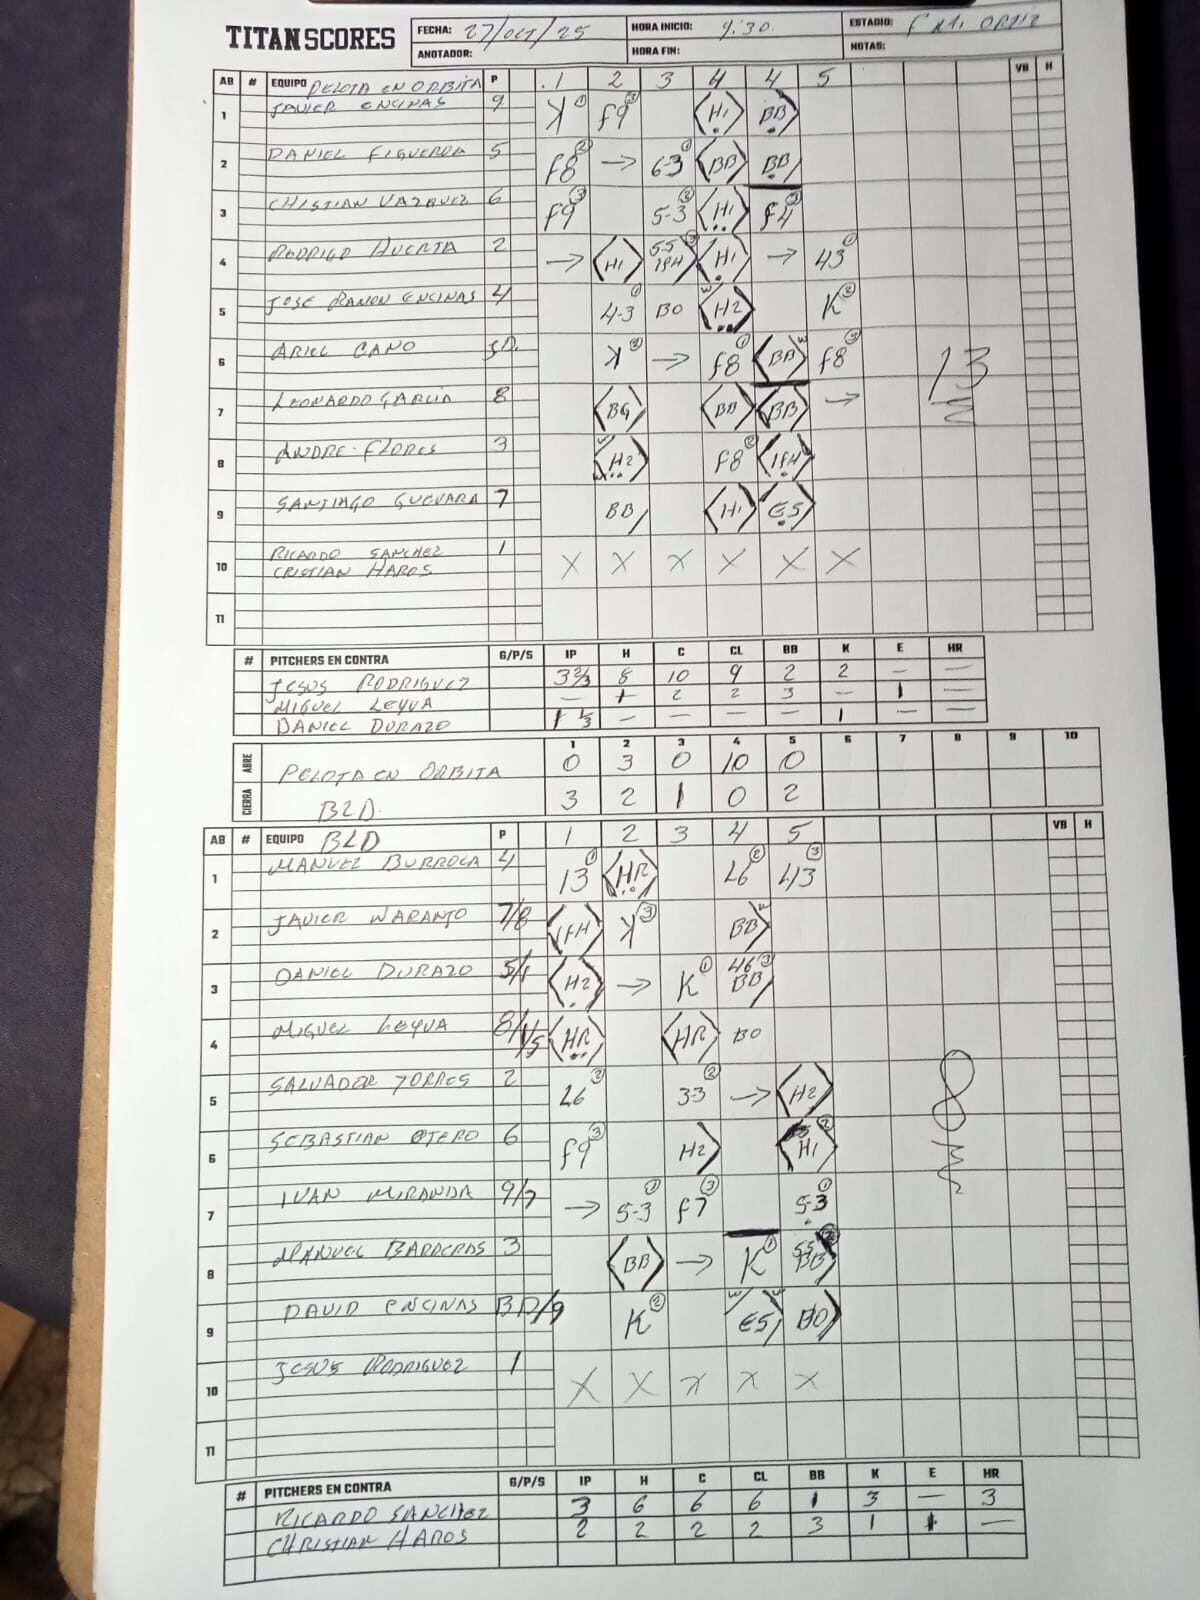 TITAN SCORES
FECHA: 27/OCT/25 HORA INICIO: 9:30 ESTADIO:
ANOTADOR: HORA FIN: NOTAS:
AB # EQUIPO PELOTA EN ORBITA P 1 2 3 4 4 5 VB H
1 JAVIER ENCINAS 9 K 1 F9 3 H1 BB
2 DANIEL FIGUEROA 5 F8 2 → 6-3 1 BB BB
3 CHISTIAN VAZQUEZ 6 F9 3 5-3 2 H1 F4 3
4 RODRIGO HUERTA 2 → H1 5-5 3 IFH H1 → 43 1
5 JOSE RAMON ENCINAS 4 4-3 1 BO H2 K 2
6 ARIEL CANO K 2 → F8 1 BB F8 3
7 LEONARDO GARCIA 8 BG BB BB →
8 ANDRE FLORES 3 H2 F8 2 IFH
9 SANTIAGO GUEVARA 7 BB H1 E5
13
10 RICARDO SANCHEZ 1 X X X X X X
CRISTIAN HAROS
11
# PITCHERS EN CONTRA G/P/S IP H C CL BB K E HR
JESUS RODRIGUEZ 3 2/3 8 10 9 2 2 — —
MIGUEL LEYVA — 1 2 2 3 — 1 —
DANIEL DURAZO 1 1/3 — — — — 1 — —
1 2 3 4 5 6 7 8 9 10
ABRE PELOTA EN ORBITA 0 3 0 10 0
CIERRA BLD. 3 2 1 0 2
AB # EQUIPO BLD P 1 2 3 4 5 VB H
1 MANUEL BURROLA 4 13 1 HR L6 2 43 3
2 JAVIER NARANJO 7/8 IFH K 3 BB
3 DANIEL DURAZO 5/1 H2 → K 1 46 3 BB
4 MIGUEL LEYVA 8/1/5 HR HR BO
5 SALVADOR TORRES 2 L6 2 33 2 → H2
6 SEBASTIAN OTERO 6 F9 3 H2 H1
7 IVAN MIRANDA 9/7 → 5-3 1 F7 3 5-3 1
8 MANUEL BARRERAS 3 BB → K 1 BB
9 DAVID ENCINAS BD/9 K 2 E5 BO
8
10 JESUS RODRIGUEZ 1 X X X X X
11
# PITCHERS EN CONTRA G/P/S IP H C CL BB K E HR
RICARDO SANCHEZ 3 6 6 6 1 3 — 3
CHRISTIAN HAROS 2 2 2 2 3 1 1 —